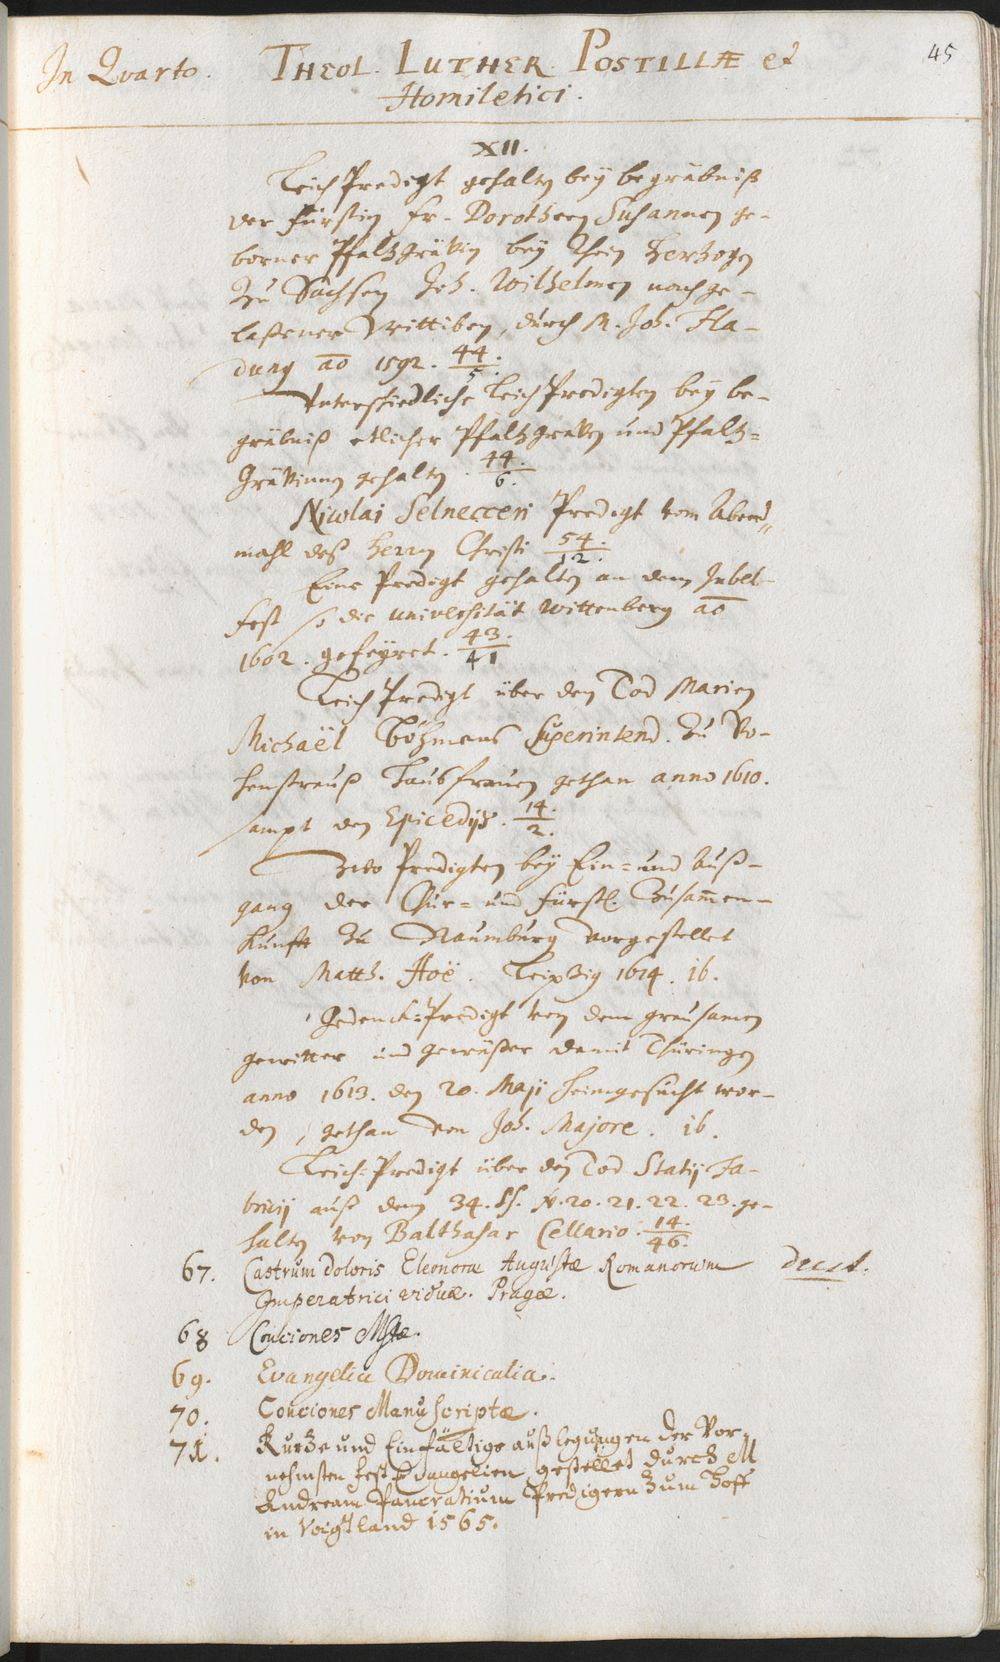 In Quarto. THEOL. LUTHER. POSTILLÆ et 45
Homiletici.
XII.
Leich Predigt gehalten bey begräbniß
der Fürstin Fr. Dorotheen Susannen ge-
borner Pfaltzgrävin bey Rhein Hertzogen
zu Sachsen Joh. Wilhelmen nachge-
laßener Wittiben, durch M. Joh. Fla-
dung aō 1592. 44./5.
Unterschiedliche Leich Predigten bey be-
gräbniß etlicher Pfaltzgraven und Pfaltz=
Grävinnen gehalten. 44./6.
Nicolai Selnecceri Predigt vom Abend
mahl deß Herrn Christi 54./12.
Eine Predigt gehalten an dem Jubel-
Fest so die Universität Wittenberg aō
1602. gefeyret. 43./41
Leich Predigt über den Tod Marien
Michaël Böhmens Superintend. zu Vo-
henstrauß Haußfrauen gethan anno 1610.
sampt den Epicedijs. 14./2.
Zwo Predigten bey Ein= und Auß-
gang der Chur= und Fürstl. Zusam̄en-
kunfft zu Naumburg vorgestellet
von Matth. Hoë. Leipzig 1614. ib.
Gedenck=Predigt von dem grausamen
gewitter und Gewäßer damit Thüringen
anno 1613. den 20. Maji heimgesucht wor-
den, gethan von Joh. Majore. ib.
Leich=Predigt über den Tod Statij Fa-
bricij auß dem 34. Ps. v. 20. 21. 22. 23. ge-
halten von Balthasar Cellario. 14./46.
67. Castrum doloris Eleonoræ Augustæ Romanorum deest.
Imperatrici viduæ. Pragæ.
68 Conciones MStæ.
69. Evangelia Dominicalia.
70. Conciones Manuscriptæ.
71. Kurtze und Einfältige außlegungen der Vor-
nehmsten Fest Evangelien gestellet durch M
Andream Pancratium Predigern zum Hoff
in Voigtland 1565.